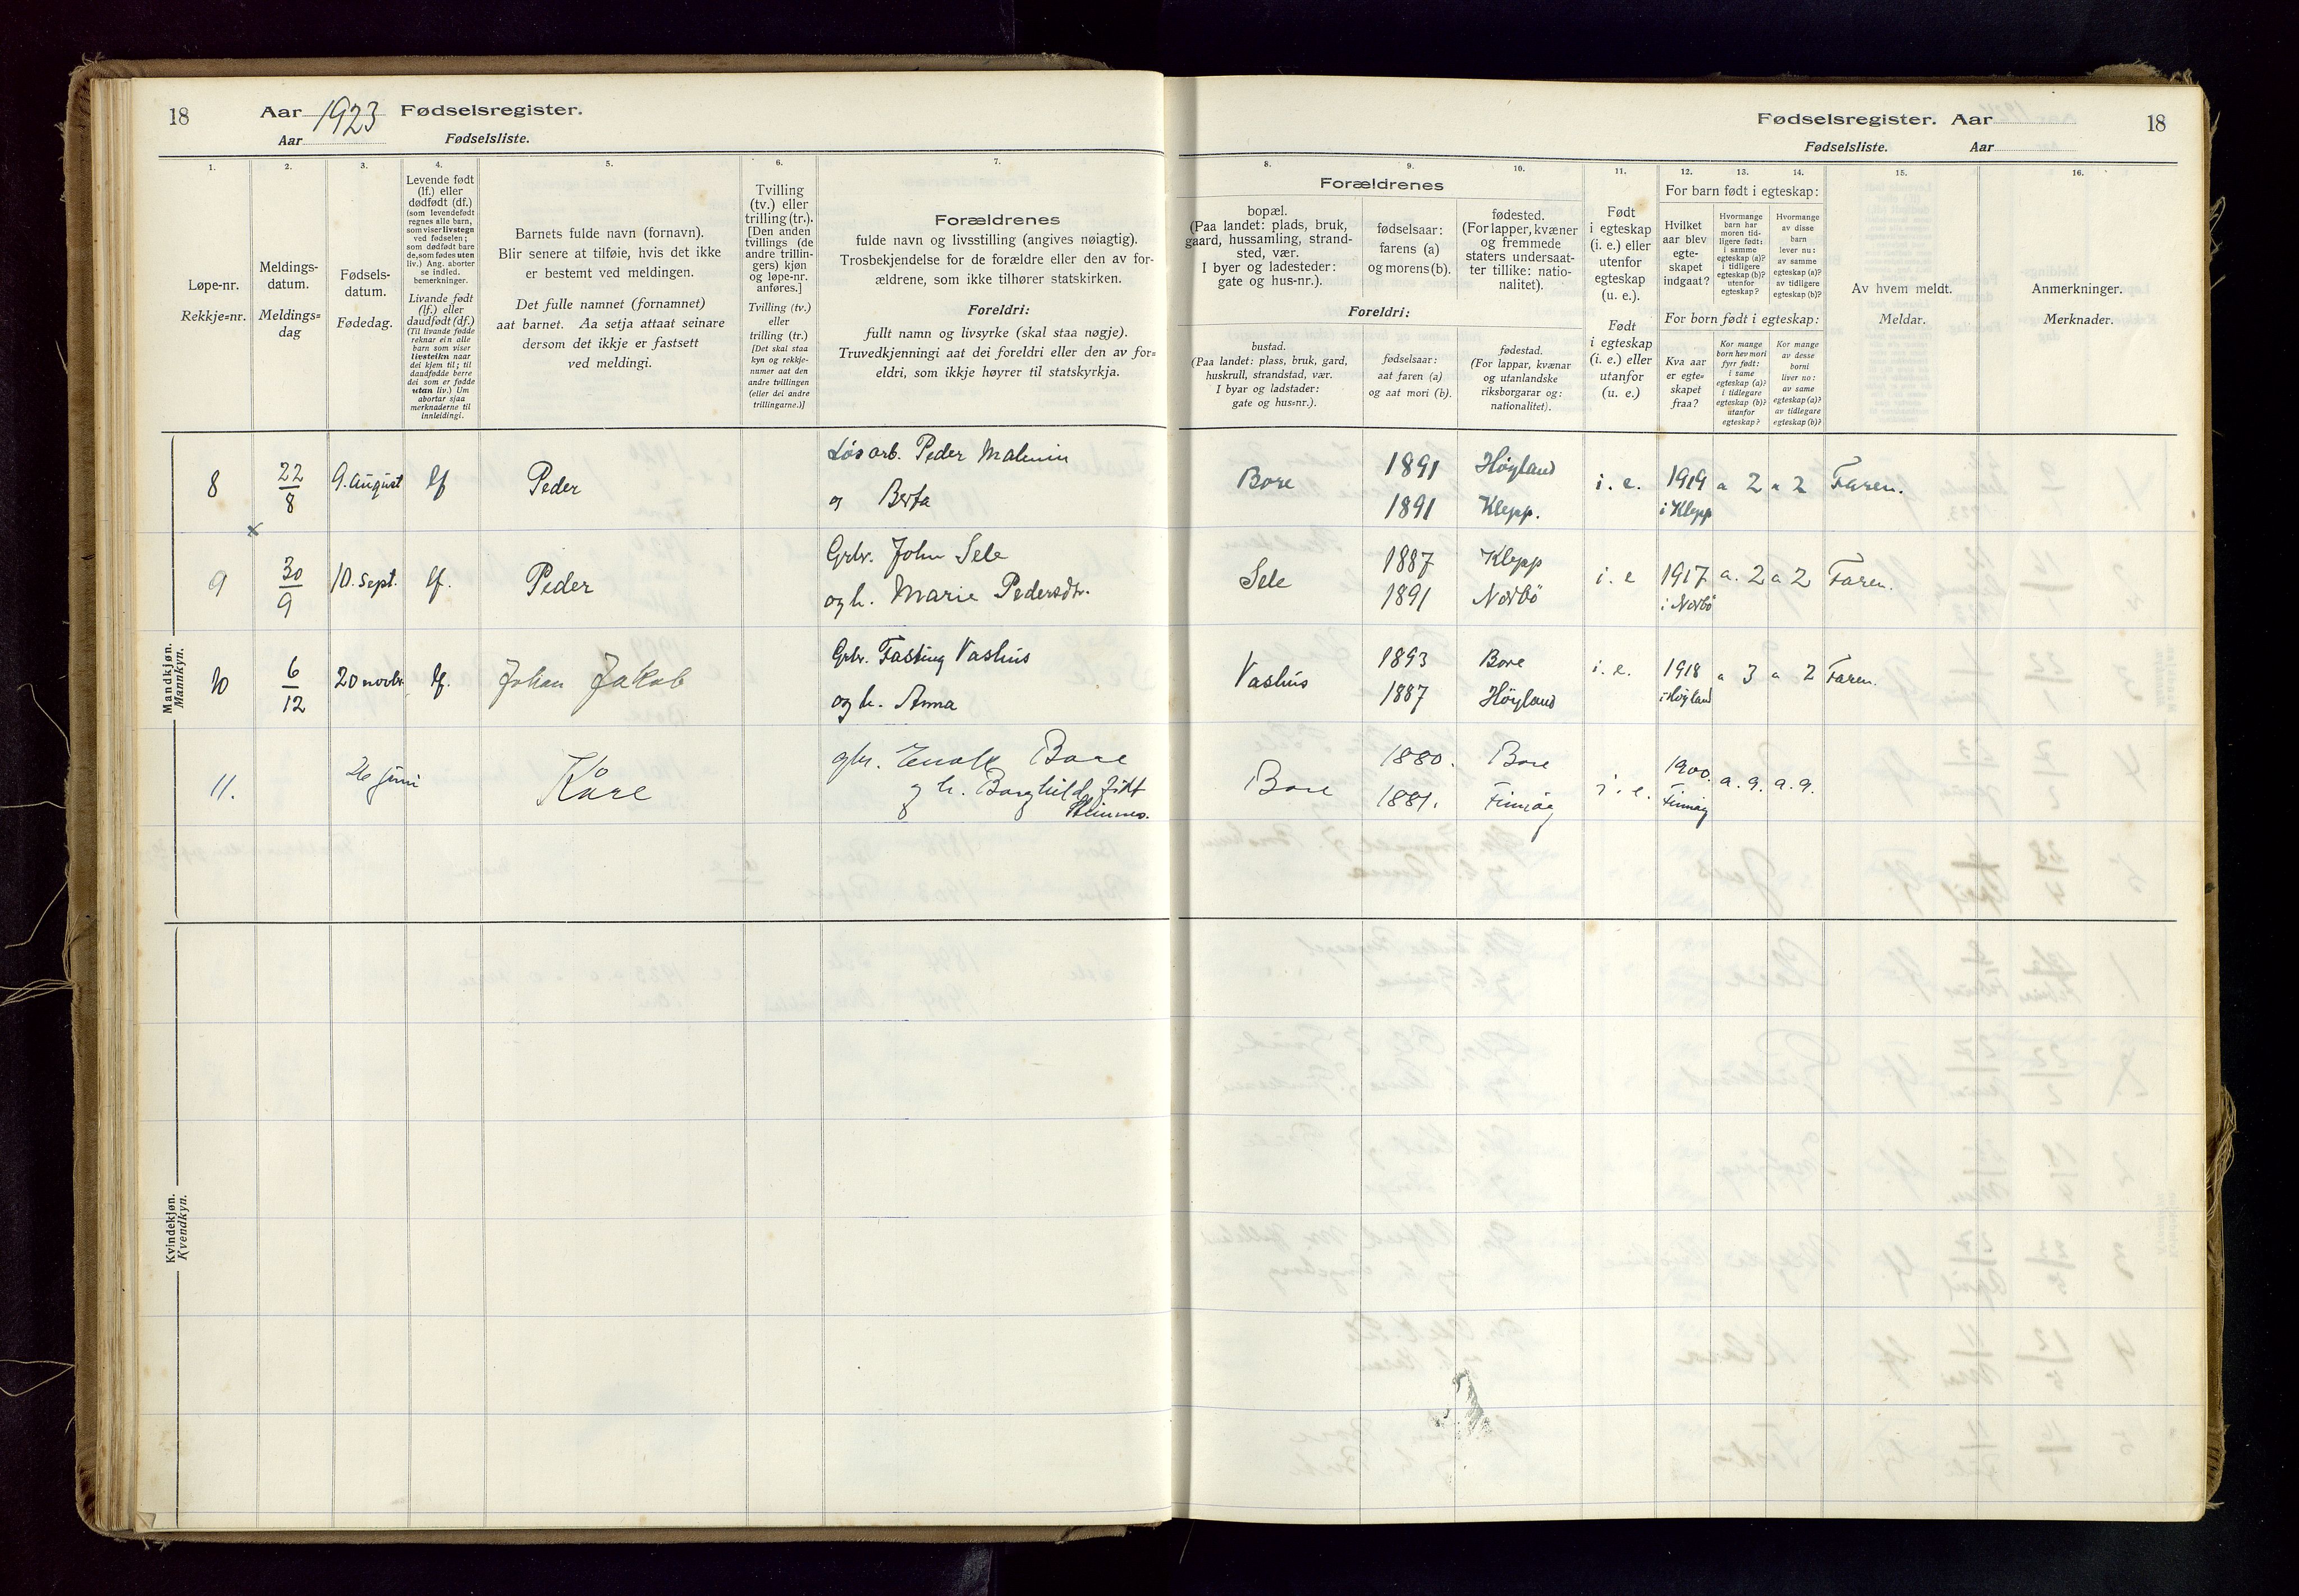 18
Aar 1923 Fødselsregister.
Aar Fødselsliste.
1.
2.
3.
4.
5.
6.
7.
Løpe-nr.
Rekkje=nr.
Meldings-
datum.
Meldings=
dag
Fødsels-
datum.
Fødedag.
Levende født
(lf.) eller
dødfødt (df.)
(som levendefødt
regnes alle barn,
som viser livstegn
ved fødselen;
som dødfødt bare
de, som fødes uten
liv.) Ang. aborter
se indled.
bemerkninger.
Livande født
(lf.) eller
daudfødt (df.)
(Til livande fødde
reknar ein alle
barn som viser
livsteikn naar
dei kjem til; til
daudfødde berre
dei som er fødde
utan liv.) Um
abortar sjaa
merknaderne til
innleidingi.
Barnets fulde navn (fornavn).
Blir senere at tilføie, hvis det ikke
er bestemt ved meldingen.
Det fulle namnet (fornamnet)
aat barnet. Aa setja attaat seinare
dersom det ikkje er fastsett
ved meldingi.
Tvilling
(tv.) eller
trilling (tr.).
[Den anden
tvillings (de
andre trillin-
gers) kjøn
og løpe-nr.
anføres.]
Tvilling (tv.)
eller
trilling (tr.)
[Det skal staa
kyn og rekkje-
numer aat den
andre tvillingen
(eller dei andre
trillingarne.)]
Forældrenes
fulde navn og livsstilling (angives nøiagtig).
Trosbekjendelse for de forældre eller den av for-
ældrene, som ikke tilhører statskirken.
Foreldri:
fullt namn og livsyrke (skal staa nøgje).
Truvedkjenningi aat dei foreldri eller den av for=
eldri, som ikkje høyrer til statskyrkja.
Mandkjøn.
Mannkyn.
8 22/8 9. august lf Peder Løsarb. Peder Malmin
og Berta
x
9 30/9 10. sept. lf. Peder Grbr. John Sele
og h. Marie Pedersdtr.
10 6/12 20 novbr. lf. Johan Jakob Grbr. Fasting Vashus
og h. Anna
11. 26 juni Kåre gbr. Enok Bore
og h. Borghild født
Kvindekjøn.
Kvendkyn.
Fødselsregister. Aar 18
Fødselsliste. Aar
8.
9.
10.
11.
12.
13.
14.
15.
16.
Forældrenes
bopæl.
(Paa landet: plads, bruk,
gaard, hussamling, strand-
sted, vær.
I byer og ladesteder:
gate og hus-nr.).
fødselsaar:
farens (a)
og morens (b).
fødested.
(For lapper, kvæner
og fremmede
staters undersaat-
ter tillike: natio-
nalitet).
Foreldri:
bustad.
(Paa landet: plass, bruk, gard,
huskrull, strandstad, vær.
I byar og ladstader:
gate og hus=nr.).
fødselsaar:
aat faren (a)
og aat mori (b).
fødestad.
(For lappar, kvænar
og utanlandske
riksborgarar og:
nationalitet).
Født
i egteskap
(i. e.) eller
utenfor
egteskap
(u. e.).
Født
i egteskap
(i. e.) eller
utanfor
(u. e.)
For barn født i egteskap:
Hvilket
aar blev
egte-
skapet
indgaat?
Hvormange
barn har
moren tid-
ligere født:
i samme
egteskap (a)?
i tidligere
egteskap (b)?
utenfor
egteskap?
Hvormange
av disse
barn
lever nu:
av samme
egteskap (a)?
av tidligere
egteskap (b)?
For born født i egteskap:
Kva aar
er egte=
skapet
fraa?
Kor mange
born hev mori
fyrr født:
i same
egteskap (a)?
i tidlegare
egteskap (b)?
utanfor
egteskap?
Kor mange
av desse
borni
liver no:
av same
egteskap (a)?
av tidlegare
egteskap (b)?
Av hvem meldt.
Meldar.
Anmerkninger.
Merknader.
Bore 1891 Høyland i. e. 1919 a 2 a 2 Faren.
1891 Klepp. i Klepp
Sele 1887 Klepp i. e 1917 a. 2 a 2 Faren.
1891 Nærbø i Nærbø
Vashus 1893 Bore i. e. 1918 a 3 a 2 Faren.
1887 Høyland i Høyland
Bore 1880. Bore i. e. 1900. a. 9. a. 9.
1881. Finnøy Finnøy